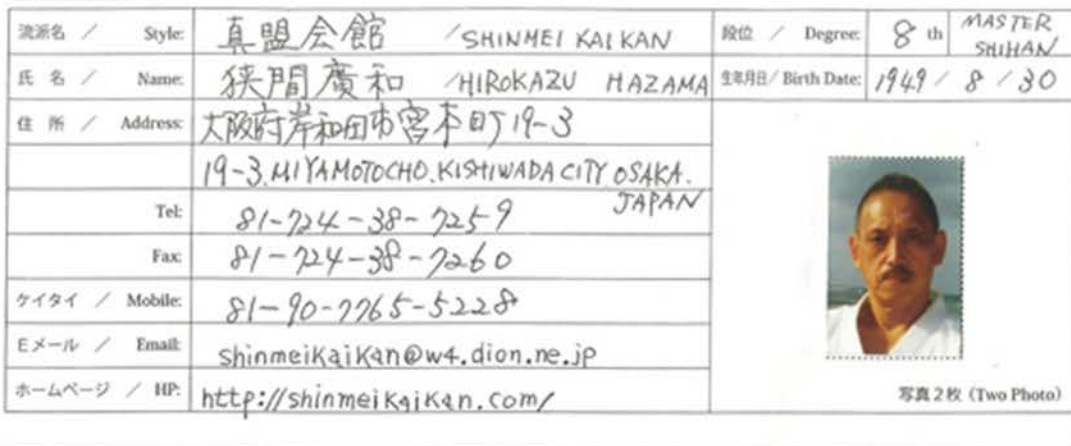 流派名 / Style: 真盟会館 /SHINMEI KAIKAN 段位 / Degree: 8 th MASTER SHIHAN
氏 名 / Name: 狭間廣和 /HIROKAZU HAZAMA 生年月日/ Birth Date: 1949 / 8 / 30
住 所 / Address: 大阪府岸和田市宮本町19-3
19-3.MIYAMOTOCHO.KISHIWADA CITY OSAKA. JAPAN
Tel: 81-724-38-7259
Fax: 81-724-38-7260
ケイタイ / Mobile: 81-90-7765-5228
Eメール / Email: shinmeikaikan@w4.dion.ne.jp
ホームページ / HP: http://shinmeikaikan.com/
写真2枚 (Two Photo)